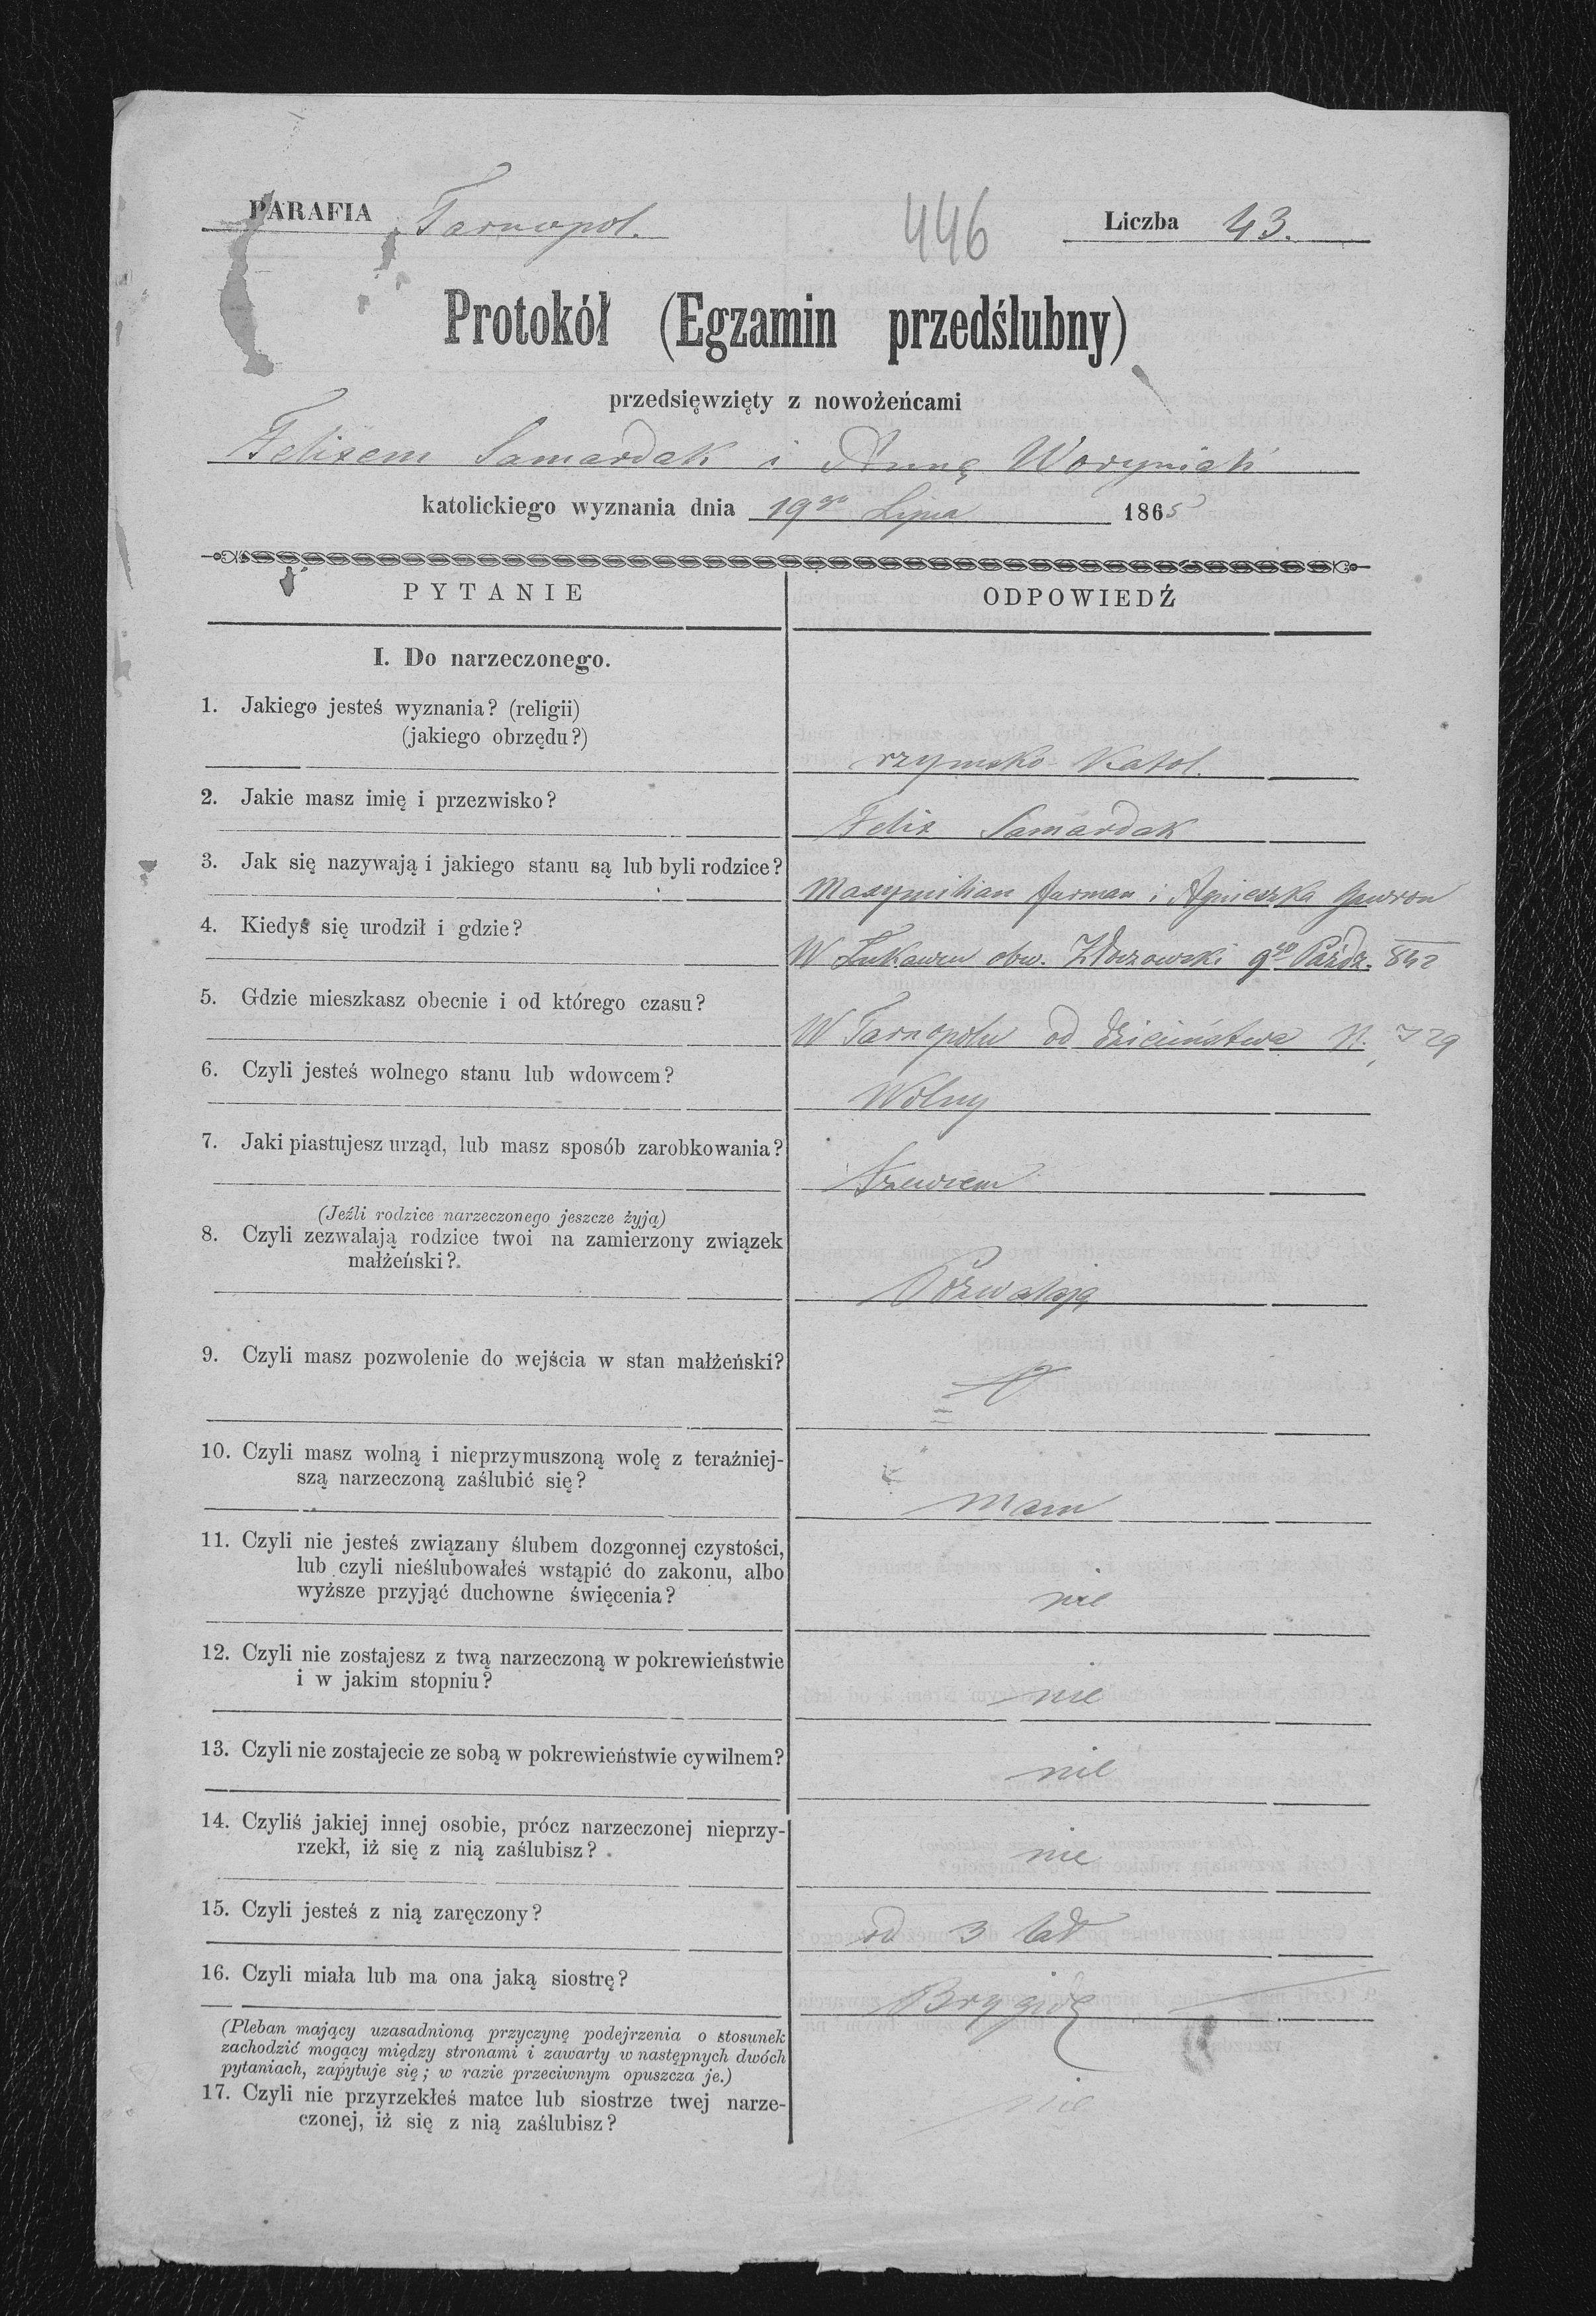 PARAFIA Tarnopol.
446
Liczba 43.
Protokół (Egzamin przedślubny)
przedsięwzięty z nowożeńcami
Felixem Samardak i Anną Woryniak
katolickiego wyznania dnia 19go Lipca 1865
PYTANIE
ODPOWIEDŹ
I. Do narzeczonego.
1. Jakiego jesteś wyznania? (religii)
(jakiego obrzędu?)
rzymsko Katol.
2. Jakie masz imię i przezwisko?
Felix Samardak
3. Jak się nazywają i jakiego stanu są lub byli rodzice?
Maxymilian furman i Agnieszka Gawron
4. Kiedyś się urodził i gdzie?
W obw. Złoczowski 9go Paźdz. 842
5. Gdzie mieszkasz obecnie i od którego czasu?
W Tarnopolu od dzieciństwa N. 729
6. Czyli jesteś wolnego stanu lub wdowcem?
Wolny
7. Jaki piastujesz urząd, lub masz sposób zarobkowania?
Szewcem
(Jeźli rodzice narzeczonego jeszcze żyją)
8. Czyli zezwalają rodzice twoi na zamierzony związek
małżeński?
Pozwalają
9. Czyli masz pozwolenie do wejścia w stan małżeński?
10. Czyli masz wolną i nieprzymuszoną wolę z teraźniej-
szą narzeczoną zaślubić się?
mam
11. Czyli nie jesteś związany ślubem dozgonnej czystości,
lub czyli nieślubowałeś wstąpić do zakonu, albo
wyższe przyjąć duchowne święcenia?
nie
12. Czyli nie zostajesz z twą narzeczoną w pokrewieństwie
i w jakim stopniu?
nie
13. Czyli nie zostajecie ze sobą w pokrewieństwie cywilnem?
nie
14. Czyliś jakiej innej osobie, prócz narzeczonej nieprzy-
rzekł, iż się z nią zaślubisz?
nie
15. Czyli jesteś z nią zaręczony?
od 3 lat
16. Czyli miała lub ma ona jaką siostrę?
Brygidę
(Pleban mający uzasadnioną przyczynę podejrzenia o stosunek
zachodzić mogący między stronami i zawarty w następnych dwóch
pytaniach, zapytuje się; w razie przeciwnym opuszcza je.)
17. Czyli nie przyrzekłeś matce lub siostrze twej narze-
czonej, iż się z nią zaślubisz?
nie